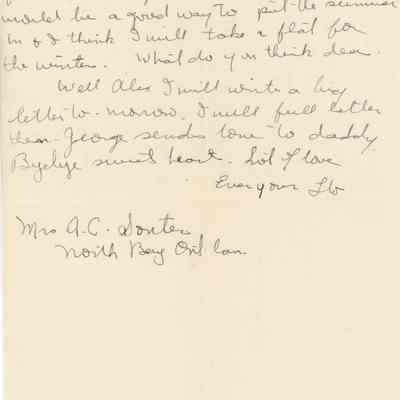 would be a good way to put the summer
in & I think I will take a flat for
the winter. What do you think dear.
Well Alex I will write a big
letter to-morow. I will feel better
then. George sends love to daddy
Byebye sweet heart. Lot of love
Ever your
Mrs A.C. Souter
North Bay Ont Can.